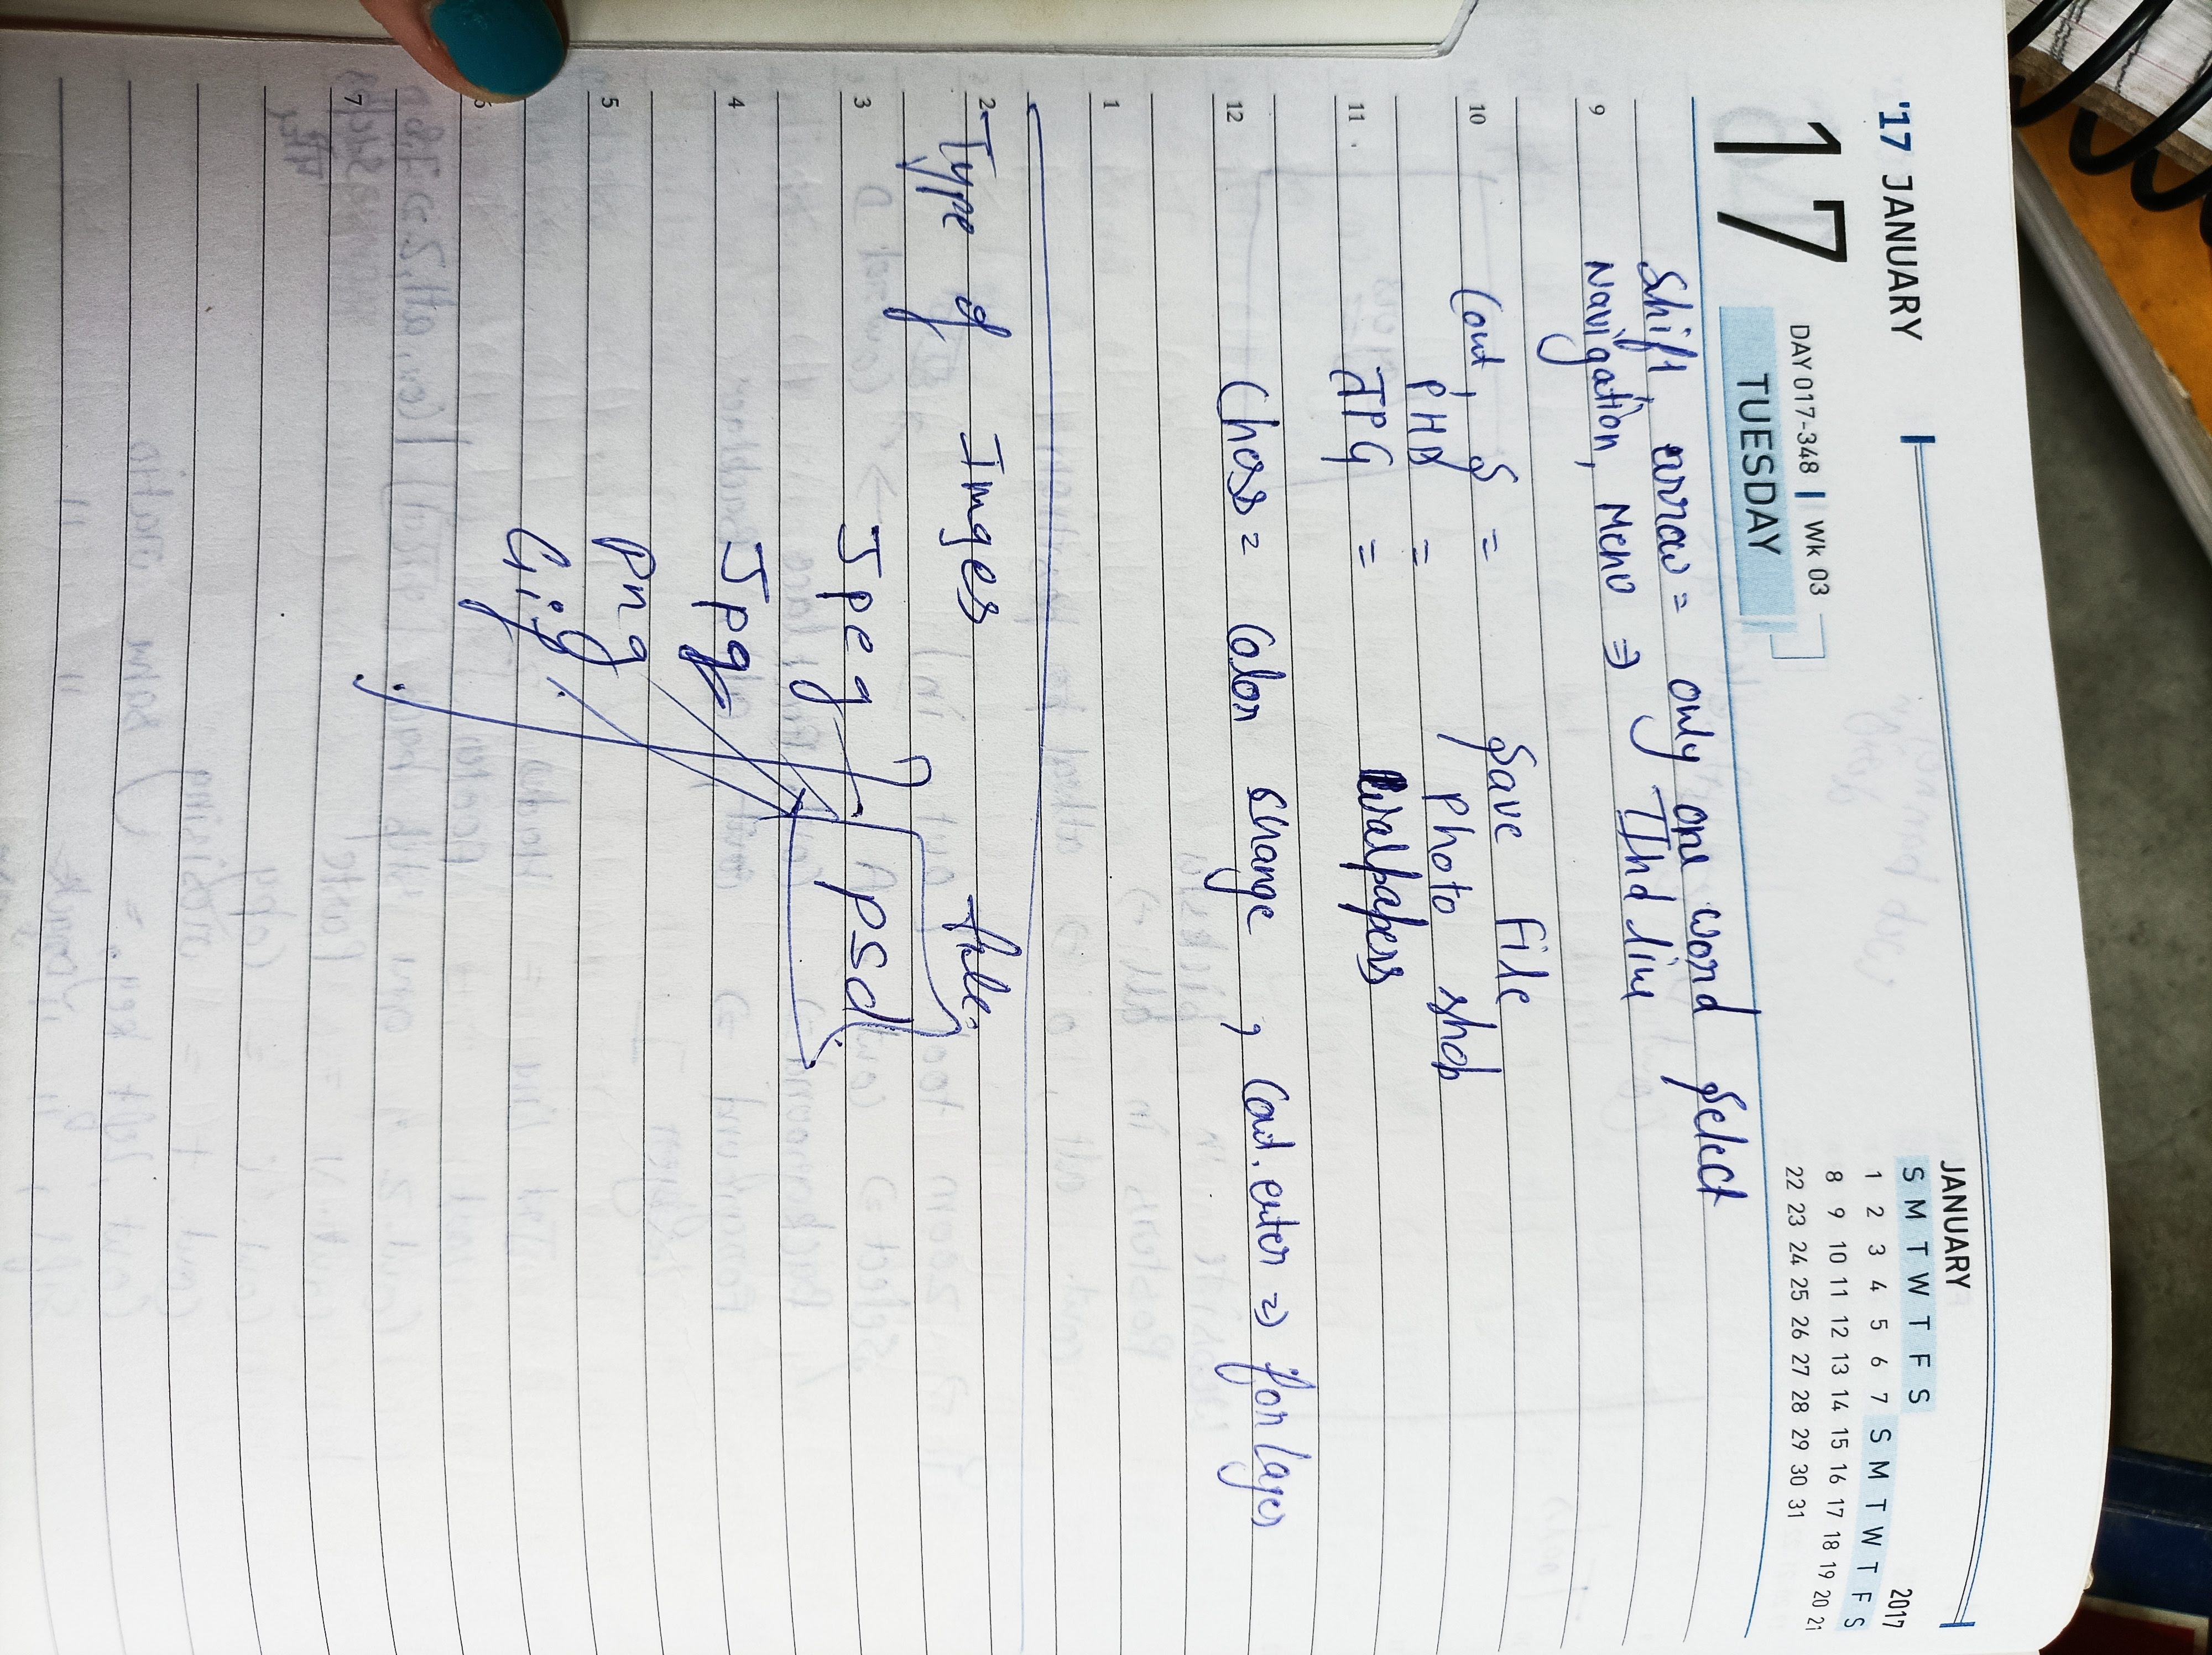 '17 JANUARY
JANUARY 2017
S M T W T F S S M T W T F S
1 2 3 4 5 6 7
8 9 10 11 12 13 14 15 16 17 18 19 20 21
22 23 24 25 26 27 28 29 30 31
17 DAY 017-348 | Wk 03
TUESDAY
Shift, arrow = only one word select
9 Navigation, Menu ⇒ IInd line
10 Cont, S = Save file
PHD = Photo shop
11 JPG = Walpapers
12 Chess = Color schange , Cont. enter ⇒ for layer
1
2 Type of Imges file.
3 Jpeg psd
4 Jpg
5 Png
6 Gif
7